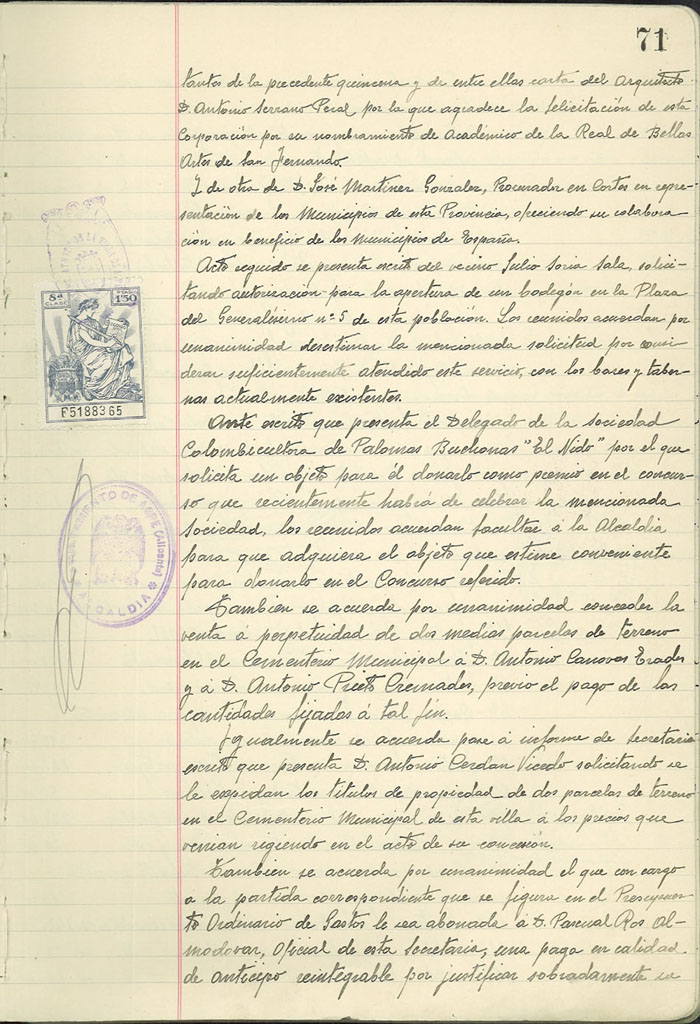 71
tantes de la precedente quincena y de entre ellas carta del Arquitecto
D. Antonio Serrano Peral por la que agradece la felicitación de esta
Corporación por su nombramiento de Académico de la Real de Bellas
Artes de San Fernando.
Y de otra de D. José Martinez Gonzalez, Procurador en Cortes en repre-
sentación de los Municipios de esta Provincia, ofreciendo su colabora-
ción en beneficio de los Municipios de España.
Acto seguido se presenta escrito del vecino Julio Soria Sala, solici-
tando autorización para la apertura de un bodegón en la Plaza
del Generalísimo nº 5 de esta población. Los reunidos acuerdan por
unanimidad desestimar la mencionada solicitud por consi-
derar suficientemente atendido este servicio, con los bares y taber-
nas actualmente existentes.
8ª CLASE
PTAS 1'50
F5188365
Ante escrito que presenta el Delegado de la Sociedad
Colombicultora de Palomas Buchonas "El Nido" por el que
solicita un objeto para él donarlo como premio en el concur-
so que recientemente habrá de celebrar la mencionada
Sociedad, los reunidos acuerdan facultar á la Alcaldia
para que adquiera el objeto que estime conveniente
para donarlo en el Concurso referido.
AYUNTAMIENTO DE ASPE (Alicante)
ALCALDIA
Tambien se acuerda por unanimidad conceder la
venta á perpetuidad de dos medias parcelas de terreno
en el Cementerio Municipal á D. Antonio Canovas Erades
y á D. Antonio Prieto Cremades, previo el pago de las
cantidades fijadas á tal fin.
Igualmente se acuerda pase á informe de Secretaria
escrito que presenta D. Antonio Cerdan Vicedo solicitando se
le expidan los titulos de propiedad de dos parcelas de terreno
en el Cementerio Municipal de esta villa á los precios que
venian rigiendo en el acto de su concesión.
Tambien se acuerda por unanimidad el que con cargo
a la partida correspondiente que se figura en el Presupues-
to Ordinario de Gastos le sea abonada á D. Pascual Ros Al-
modovar, Oficial de esta Secretaria, una paga en calidad
de anticipo reintegrable por justificar sobradamente su